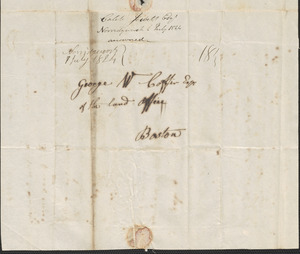 Caleb Jewett Esq
Norridgewock 1 July 1844
answered
Norridgewock
1 July 1844
18¾
George W Coffin Esqr
of the land Office
Boston